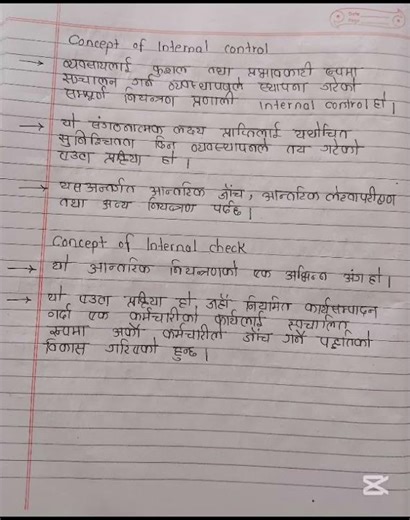 Concept of Internal control
→ व्यवसायलाई कुशल तथा प्रभावकारी रूपमा
सञ्चालन गर्न व्यवस्थापनले स्थापना गरेको
सम्पूर्ण नियन्त्रण प्रणाली Internal control हो।
→ यो संगठनात्मक लक्ष्य प्राप्तिलाई यथोचित
सुनिश्चितता दिन व्यवस्थापनले तय गरेको
एउटा प्रक्रिया हो।
→ यस अन्तर्गत आन्तरिक जाँच, आन्तरिक लेखापरीक्षण
तथा अन्य नियन्त्रण पर्दछ।
Concept of Internal check
→ यो आन्तरिक नियन्त्रणको एक अभिन्न अंग हो।
→ यो एउटा प्रक्रिया हो, जहाँ नियमित कार्यसम्पादन
गर्दा एक कर्मचारीको कार्यलाई स्वचालित
रूपमा अर्को कर्मचारीले जाँच गर्ने पद्दतिको
विकास गरिएको हुन्छ।